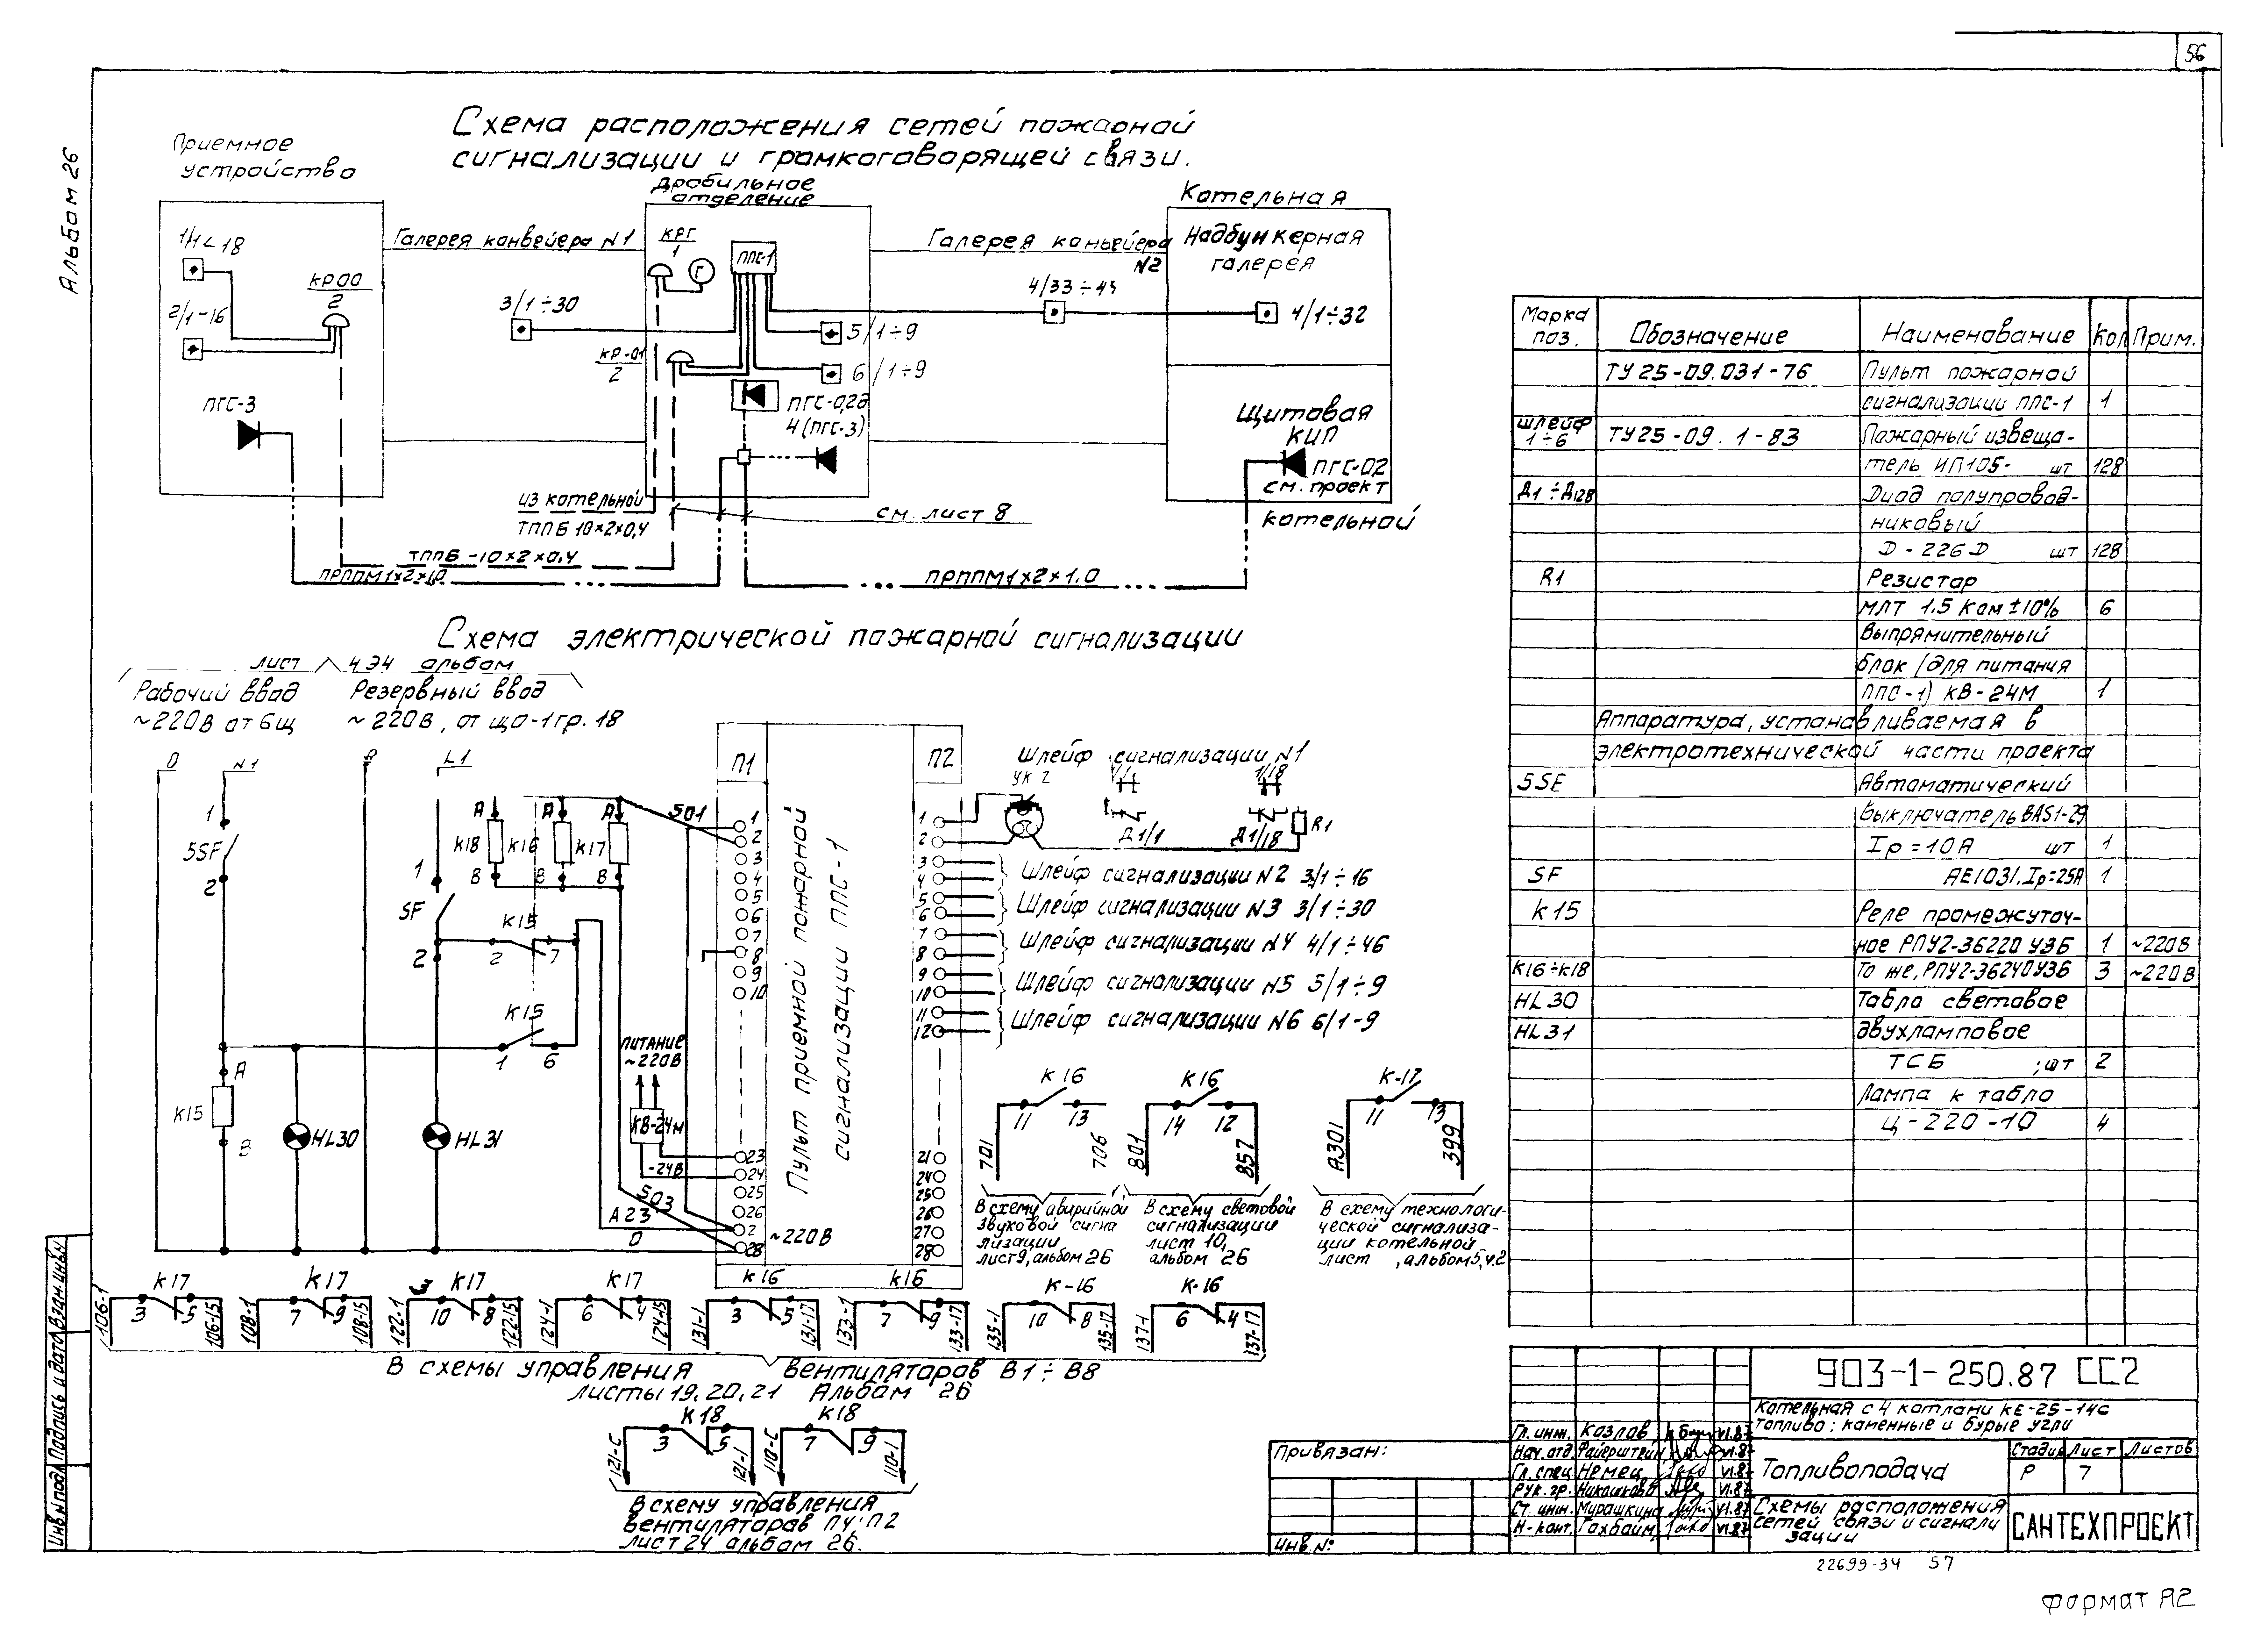 56
Альбом 26
Схема расположения сетей пожарной
сигнализации и громкоговорящей связи.
Приемное
устройство
1/1÷18
2/1-16
КР00
2
ПГС-3
Галерея конвейера N1
3/1÷30
Дробильное
отделение
КРГ
1
Г
ППС-1
КР-01
2
5/1÷9
6/1÷9
ПГС-0,2д
4 (ПГС-3)
Галерея конвейера
N2
Котельная
Надбункерная
галерея
4/1÷32
Щитовая
КИП
ПГС-0,2
см. проект
котельной
из котельной
ТППБ 10×2×0,4
см. лист 8
ТППБ-10×2×0,4
ПРППМ1×2×1,0
ПРППМ1×2×1.0
Схема электрической пожарной сигнализации
лист 4 ЭЧ альбом
Рабочий ввод
~220В от 6щ
Резервный ввод
~220В, от що-1 гр. 18
0
N1
L1
1
5SF
2
1
SF
2
A
K18
B
A
K16
B
A
K17
B
501
K15
2
7
K15
1
6
A
K15
B
HL30
HL31
питание
~220В
КВ-24м
-24В
503
А23
0
П1
П2
Пульт приемной пожарной
сигнализации ППС-1
1
2
3
4
5
6
7
8
9
10
23
24
25
26
2
28
~220В
1
2
3
4
5
6
7
8
9
10
11
12
21
24
25
26
27
28
Шлейф сигнализации N1
УК 2
1/18
Д1/1
Д1/18
R1
Шлейф сигнализации N2 3/1÷16
Шлейф сигнализации N3 3/1÷30
Шлейф сигнализации N4 4/1÷46
Шлейф сигнализации N5 5/1÷9
Шлейф сигнализации N6 6/1-9
K16
11
13
701
706
В схему аварийной
звуковой сигна
лизации
лист9, альбом 26
K16
14
12
801
857
В схему световой
сигнализации
лист 10,
альбом 26
K-17
11
13
А301
399
В схему технологи-
ческой сигнализа-
ции котельной
лист , альбом5,ч.2
K17
106-1
3
5
106-15
K17
108-1
7
9
108-15
K17
122-1
10
8
122-15
K17
124-1
6
4
124-15
K16
131-1
3
5
131-17
K16
133-1
7
9
133-17
K-16
135-1
10
8
135-17
K-16
137-1
6
4
137-17
В схемы управления вентиляторов В1÷В8
листы 19,20,21 Альбом 26
K18
121-С
3
5
121-1
K18
110-С
7
9
110-1
В схему управления
вентиляторов ПУ÷П2
лист 24 альбом 26.
Марка поз. Обозначение Наименование Кол Прим.
ТУ 25-09.031-76 Пульт пожарной
сигнализации ППС-1 1
шлейф
1÷6 ТУ25-09.1-83 Пожарный извеща-
тель ИП105- шт 128
Д1÷Д128 Диод полупровод-
никовый
Д-226Д шт 128
R1 Резистор
МЛТ 1.5 Ком ±10% 6
Выпрямительный
блок (для питания
ППС-1) КВ-24М 1
Аппаратура, устанавливаемая в
электротехнической части проекта
5SF Автоматический
выключатель ВА51-29
Iр=10А шт 1
SF АЕ1031, Iр=25А 1
K15 Реле промежуточ-
ное РПУ2-36220 УЗБ 1 ~220В
K16÷K18 То же, РПУ2-36240УЗБ 3 ~220В
HL30 Табло световое
HL31 двухламповое
ТСБ ; шт 2
Лампа к табло
Ц-220-10 4
903-1-250.87 СС2
Котельная с 4 котлами КЕ-25-14С
Топливо: каменные и бурые угли
Топливоподача
Стадия Лист Листов
Р 7
Схемы расположения
сетей связи и сигнали
зации
САНТЕХПРОЕКТ
Гл. инж. Козлов VI.87
Нач. отд. Файерштейн VI.87
Гл. спец. Немец VI.87
Рук. гр. VI.87
Ст. инж. Мурашкина VI.87
Н-конт. VI.87
Привязан:
Инв. N°
Взам. инв. N
Подпись и дата
Инв. N подл.
22699-34 57
формат А2